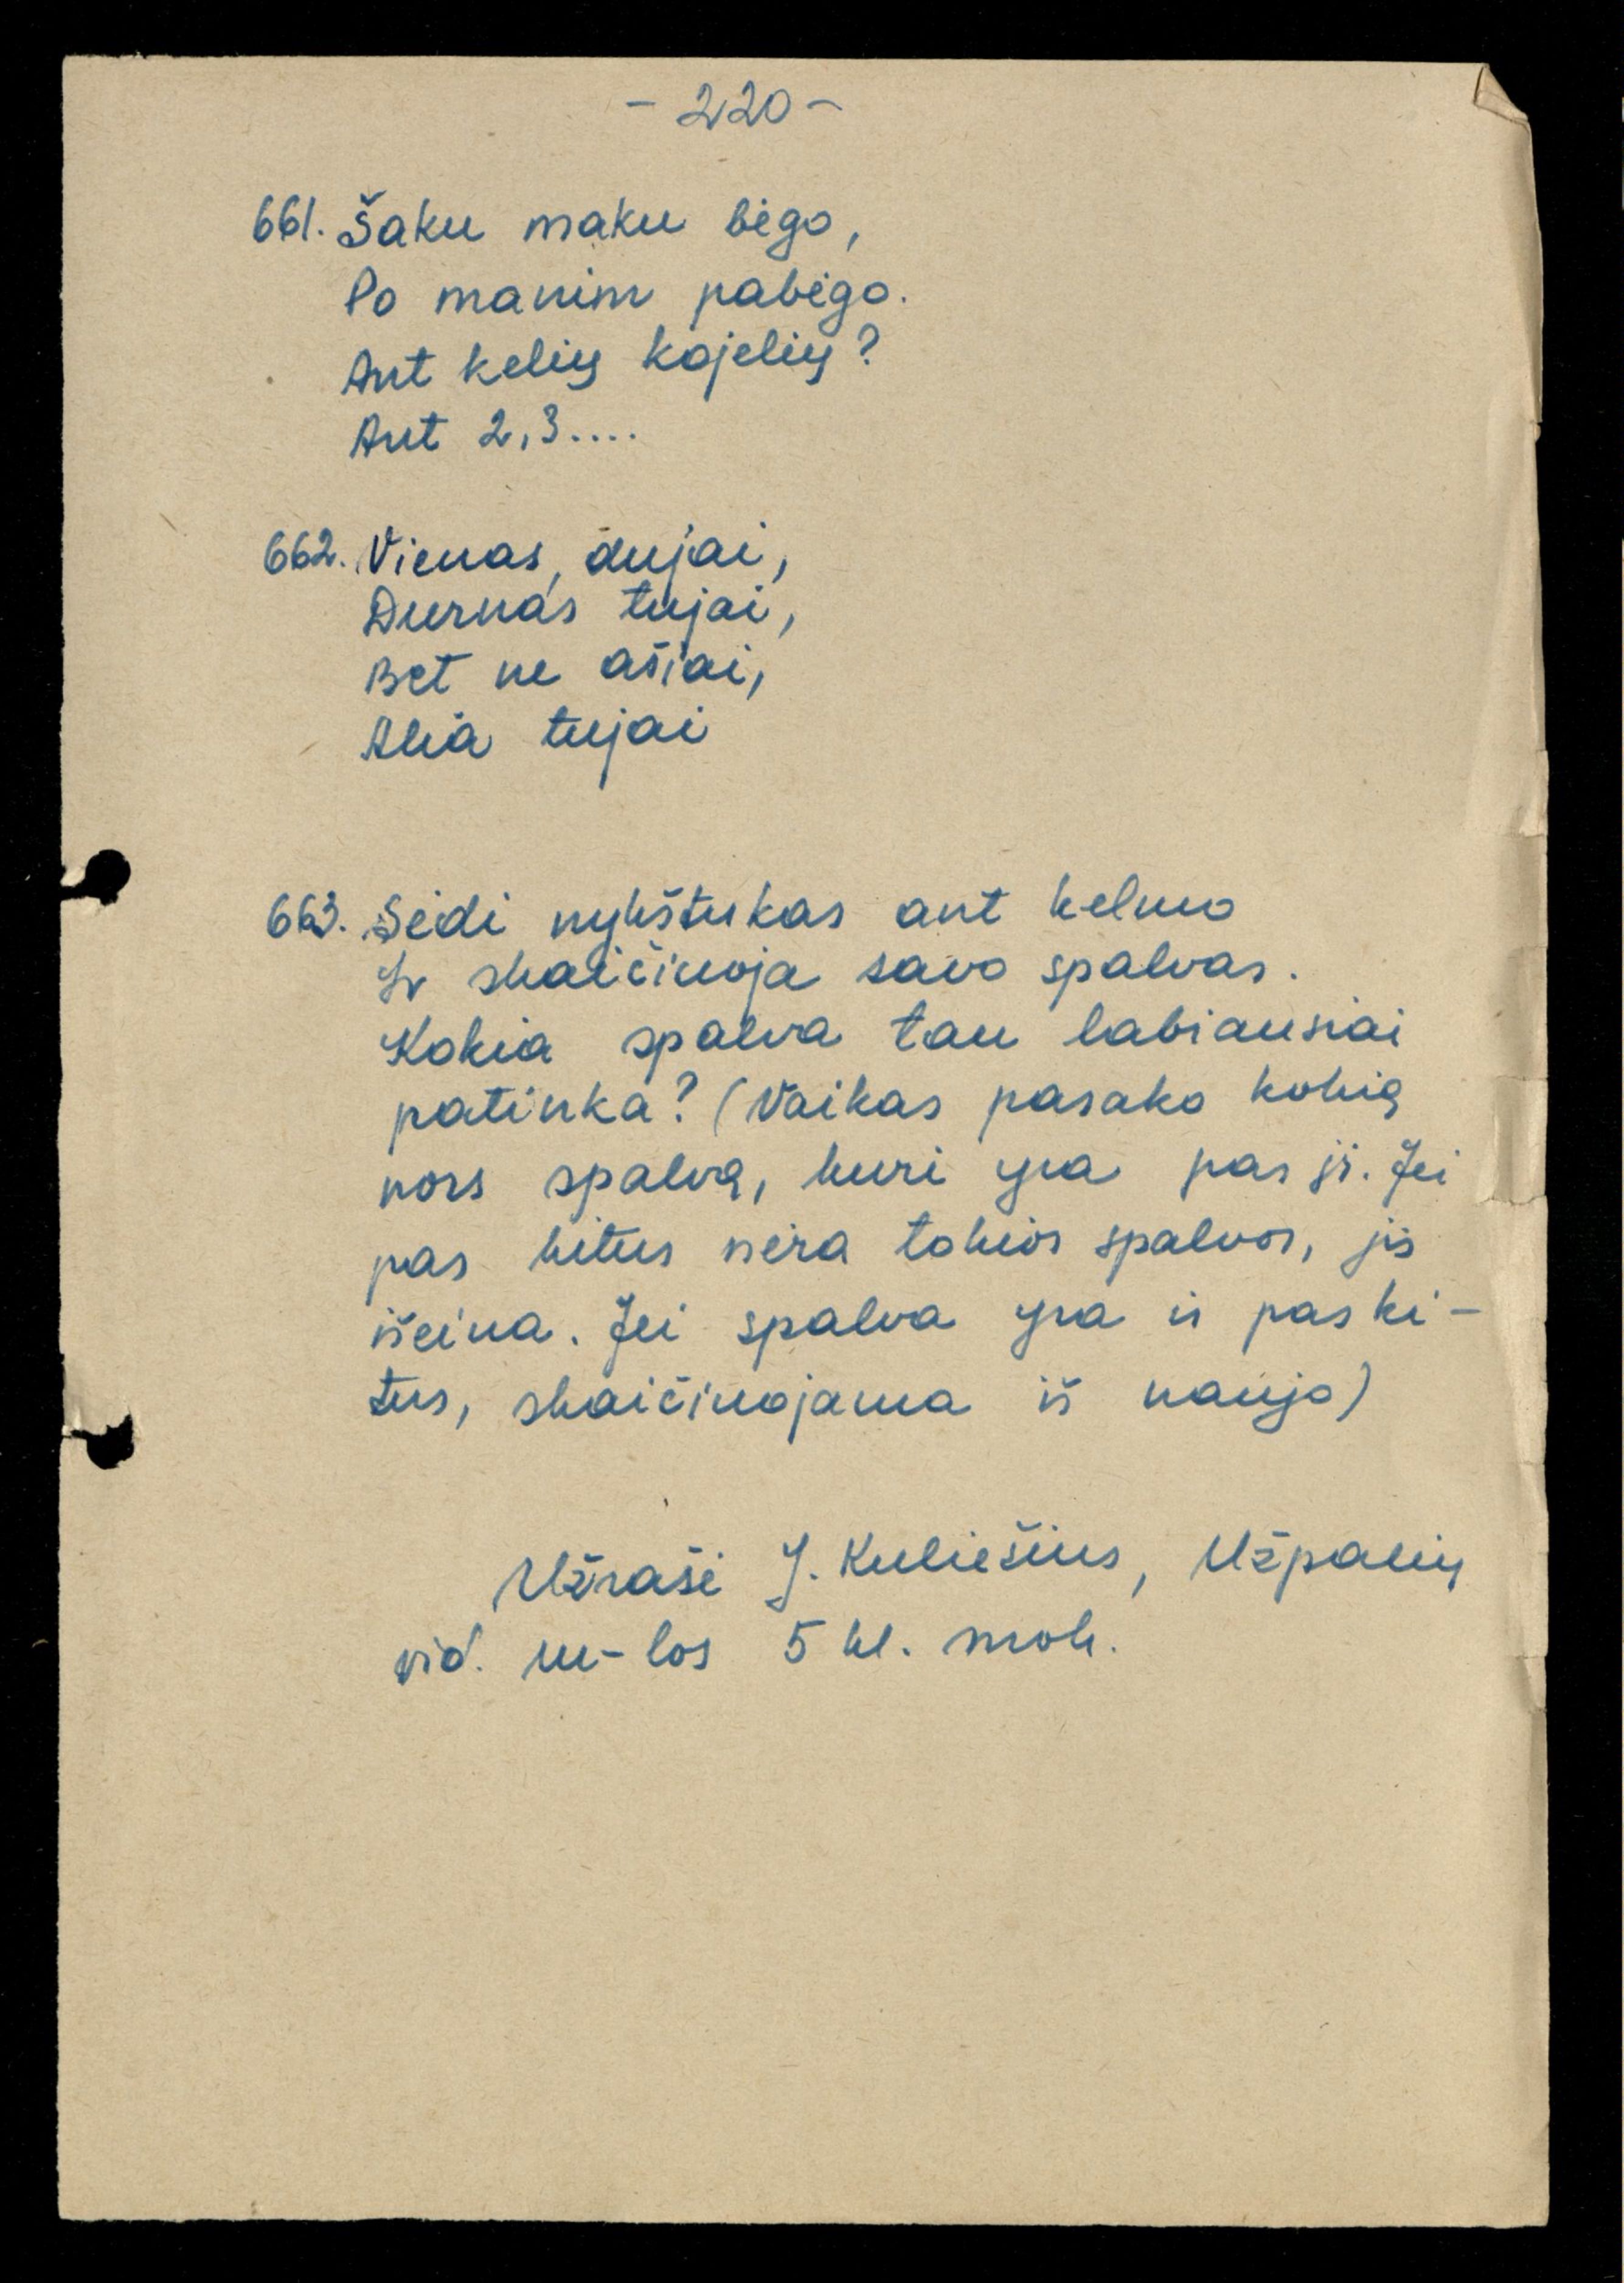 - 220 -
661. Šaku maku bėgo,
Po manim pabėgo.
Ant kelių kojelių?
Ant 2,3....
662. Vienas, dujai,
Durnas tujai,
Bet ne ašiai,
Alia tujai
663. Sėdi nykštukas ant kelmo
Ir skaičiuoja savo spalvas.
Kokia spalva tau labiausiai
patinka? (Vaikas pasako kokią
nors spalvą, kuri yra pas jį. Jei
pas kitus nėra tokios spalvos, jis
išeina. Jei spalva yra ir pas ki-
tus, skaičiuojama iš naujo)
Užrašė J. Kuliešius, Užpalių
vid. m-los 5 kl. mok.